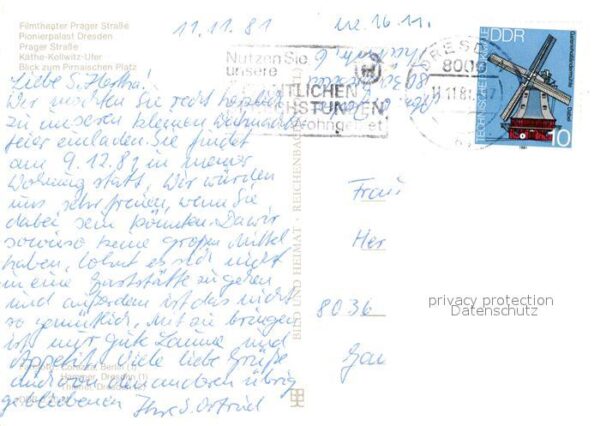 Filmtheater Prager Straße
Pionierpalast Dresden
Prager Straße
Käthe-Kollwitz-Ufer
Blick zum Pirnaischen Platz
11.11.81
Liebe S. Hertha!
Wir möchten Sie recht herzlich
zu unserer kleinen Weihnachts
feier einladen. Sie findet
am 9.12.81 in meiner
Wohnung statt. Wir würden
uns sehr freuen, wenn Sie
dabei sein könnten. Da wir
sowieso keine großen Mittel
haben, lohnt es sich nicht
in eine Gaststätte zu gehen
und außerdem ist das nicht
so gemütlich. Mit zu bringen
ist nur gute Laune und
Appetit. Viele liebe Grüße
und von den anderen übrig
gebliebenen Ihre S. Ortrud
Nutzen Sie
unsere
8006
11.11.81
DDR
10
BILD UND HEIMAT · REICHENBACH
Frau
Her
8036
Gau
privacy protection
Datenschutz